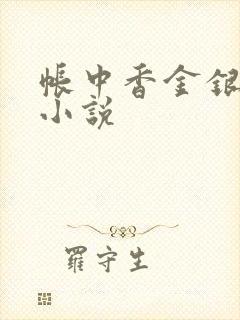 帳中香金銀
小說
羅守生